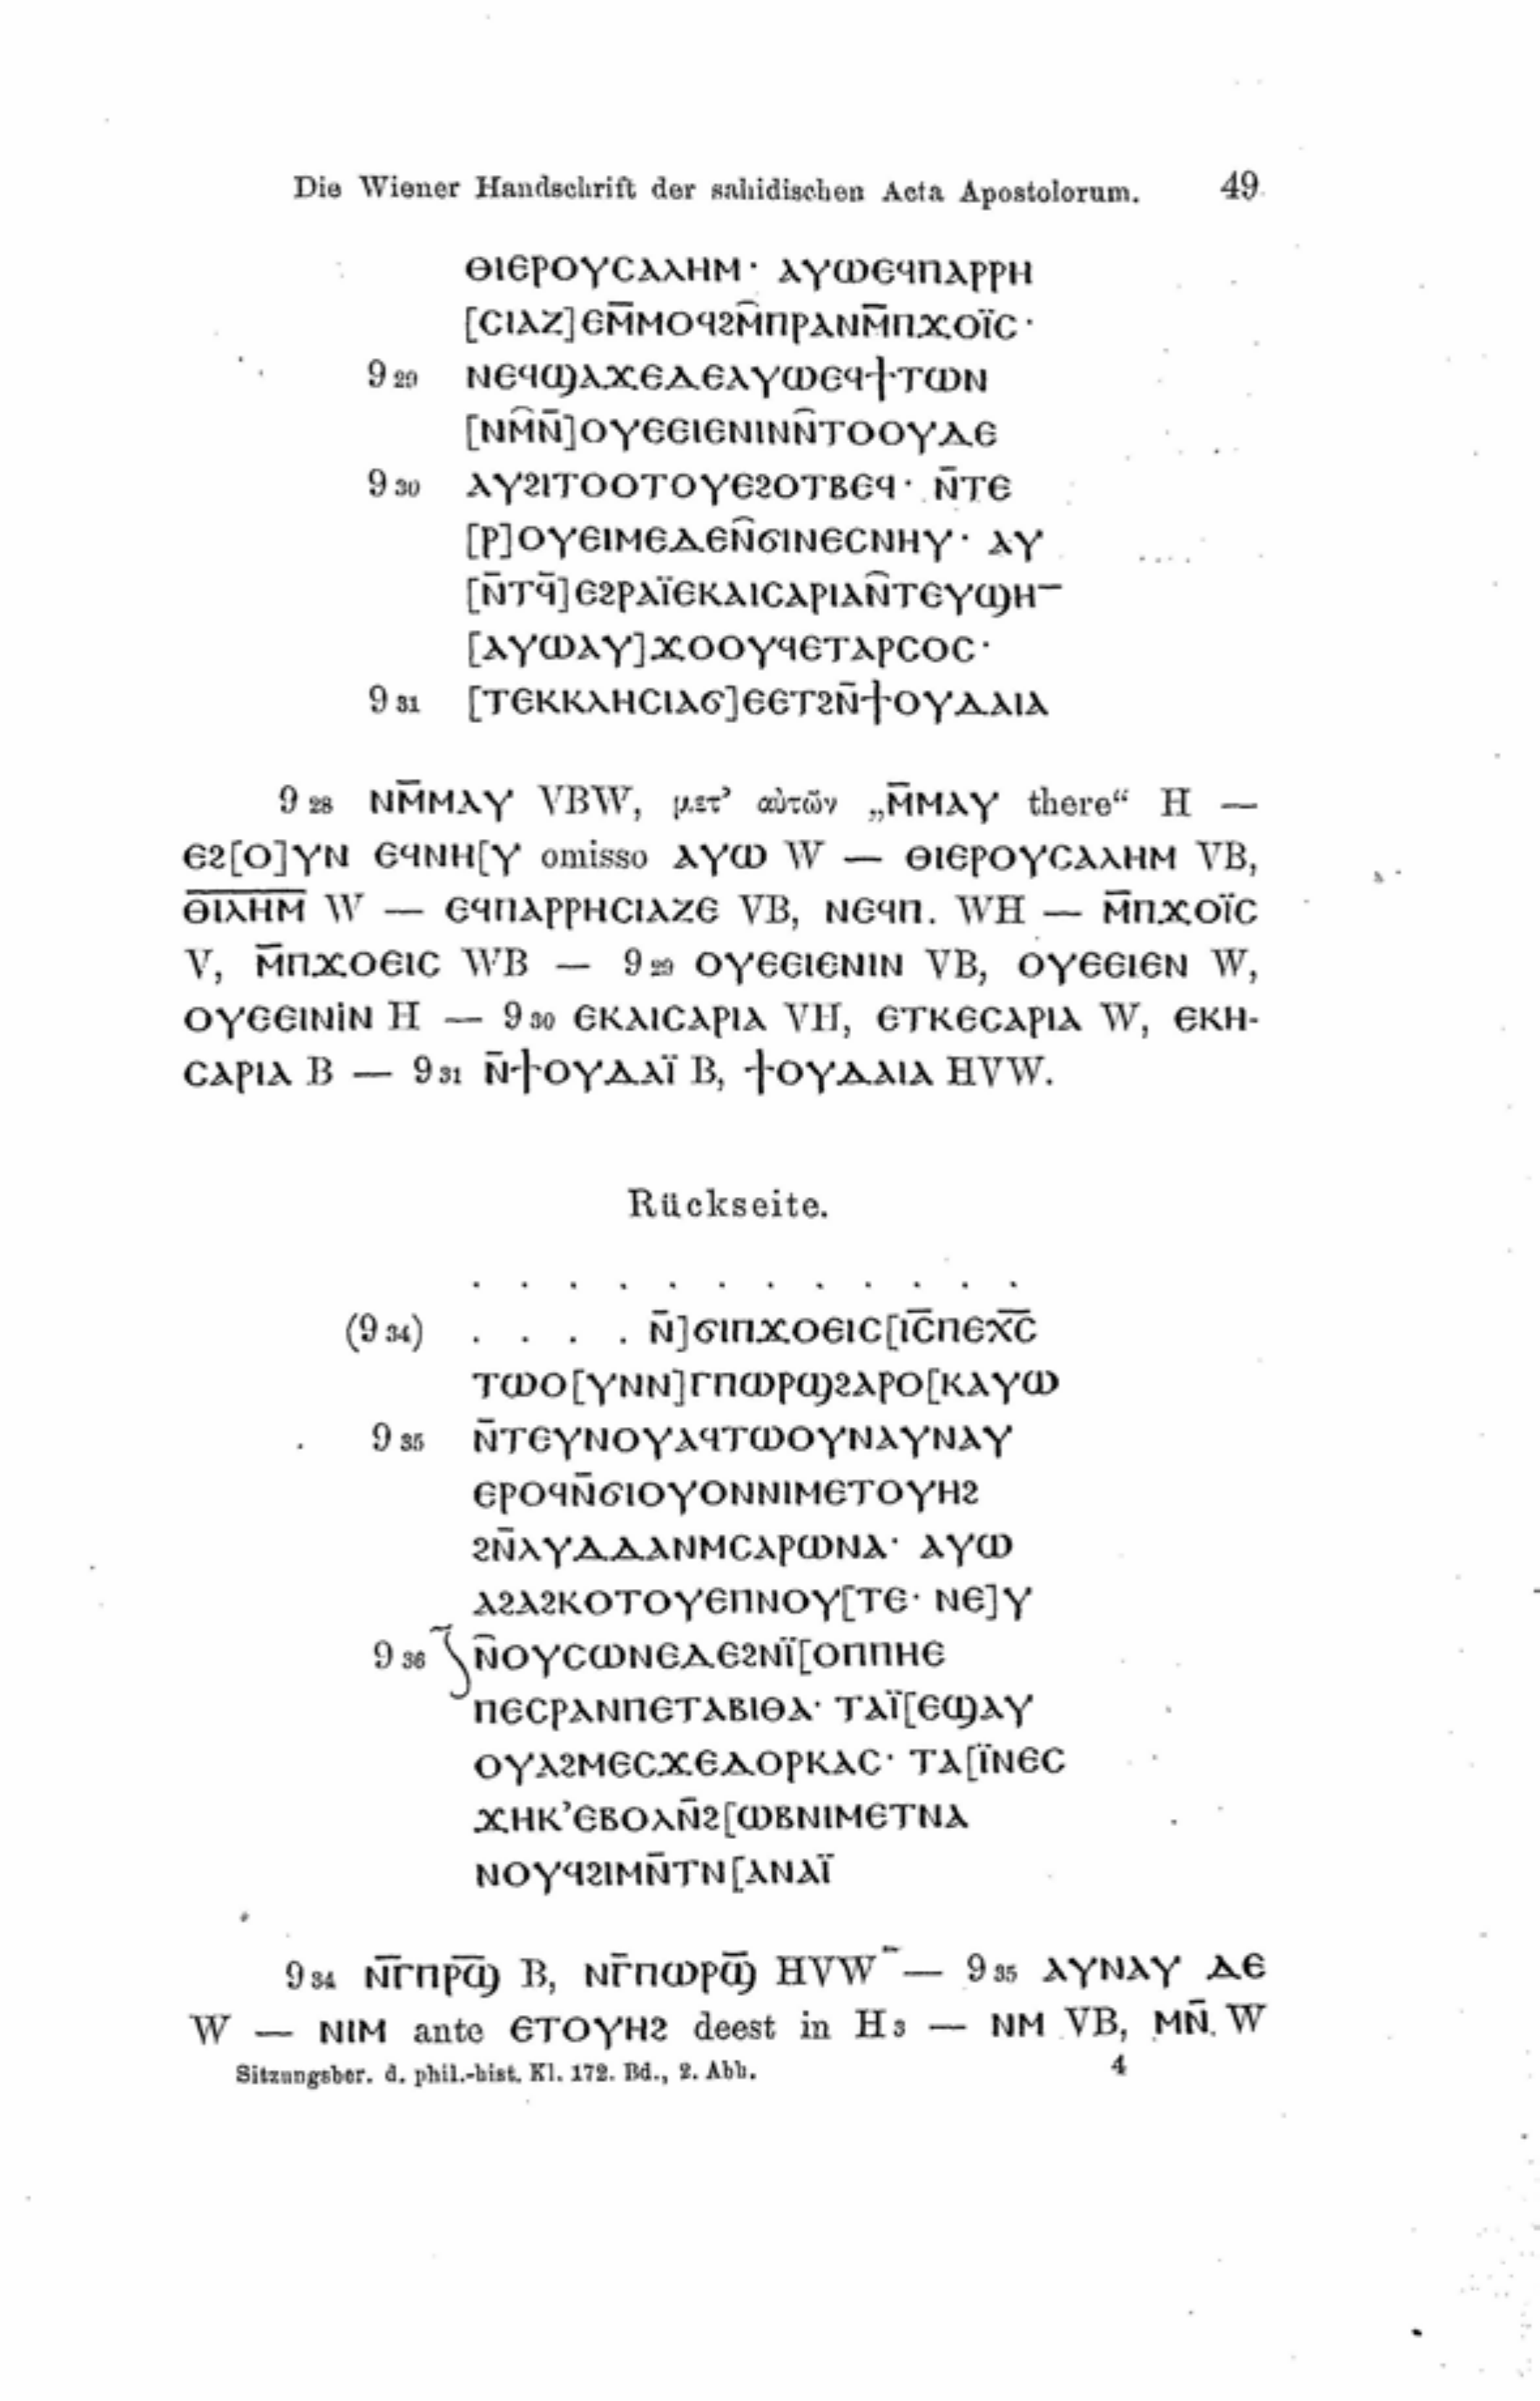 Die Wiener Handschrift der sahidischen Acta Apostolorum. 49
ⲑⲓⲉⲣⲟⲩⲥⲁⲗⲏⲙ· ⲁⲩⲱⲉϥⲡⲁⲣⲣⲏ
[ⲥⲓⲁⲍ]ⲉⲙ̄ⲙⲟϥϩⲙ̑ⲡⲣⲁⲛⲙ̄ⲡϫⲟⲓ̈ⲥ·
9 29 ⲛⲉϥϣⲁϫⲉⲇⲉⲁⲩⲱⲉϥϯⲧⲱⲛ
[ⲛⲙ̑ⲛ̄]ⲟⲩⲉⲉⲓⲉⲛⲓⲛⲛ̑ⲧⲟⲟⲩⲇⲉ
9 30 ⲁⲩϩⲓⲧⲟⲟⲧⲟⲩⲉϩⲟⲧⲃⲉϥ· ⲛ̄ⲧⲉ
[ⲣ]ⲟⲩⲉⲓⲙⲉⲇⲉⲛ̑ϭⲓⲛⲉⲥⲛⲏⲩ· ⲁⲩ
[ⲛ̄ⲧϥ̄]ⲉϩⲣⲁⲓ̈ⲉⲕⲁⲓⲥⲁⲣⲓⲁⲛ̑ⲧⲉⲩϣⲏ‾
[ⲁⲩⲱⲁⲩ]ϫⲟⲟⲩϥⲉⲧⲁⲣⲥⲟⲥ·
9 31 [ⲧⲉⲕⲕⲗⲏⲥⲓⲁϭ]ⲉⲉⲧϩⲛ̄ϯⲟⲩⲇⲁⲓⲁ
9 28 ⲛⲙ̄ⲙⲁⲩ VBW, μετ’ αὐτῶν „ⲙ̄ⲙⲁⲩ there“ H —
ⲉϩ[ⲟ]ⲩⲛ ⲉϥⲛⲏ[ⲩ omisso ⲁⲩⲱ W — ⲑⲓⲉⲣⲟⲩⲥⲁⲗⲏⲙ VB,
ⲑ̅ⲓ̅ⲗ̅ⲏ̅ⲙ̅ W — ⲉϥⲡⲁⲣⲣⲏⲥⲓⲁⲍⲉ VB, ⲛⲉϥⲡ. WH — ⲙ̄ⲡϫⲟⲓ̈ⲥ
V, ⲙ̄ⲡϫⲟⲉⲓⲥ WB — 9 29 ⲟⲩⲉⲉⲓⲉⲛⲓⲛ VB, ⲟⲩⲉⲉⲓⲉⲛ W,
ⲟⲩⲉⲉⲓⲛⲓⲛ H — 9 30 ⲉⲕⲁⲓⲥⲁⲣⲓⲁ VH, ⲉⲧⲕⲉⲥⲁⲣⲓⲁ W, ⲉⲕⲏ-
ⲥⲁⲣⲓⲁ B — 9 31 ⲛ̄ϯⲟⲩⲇⲁⲓ̈ B, ϯⲟⲩⲇⲁⲓⲁ HVW.
Rückseite.
. . . . . . . . . . . .
(9 34) . . . . ⲛ̄]ϭⲓⲡϫⲟⲉⲓⲥ[ⲓⲥ̅ⲡⲉⲭ̅ⲥ̅
ⲧⲱⲟ[ⲩⲛⲛ]ⲅⲡⲱⲣϣϩⲁⲣⲟ[ⲕⲁⲩⲱ
9 35 ⲛ̄ⲧⲉⲩⲛⲟⲩⲁϥⲧⲱⲟⲩⲛⲁⲩⲛⲁⲩ
ⲉⲣⲟϥⲛ̄ϭⲓⲟⲩⲟⲛⲛⲓⲙⲉⲧⲟⲩⲏϩ
ϩⲛ̄ⲁⲩⲇⲇⲁⲛⲙⲥⲁⲣⲱⲛⲁ· ⲁⲩⲱ
ⲁϩⲁϩⲕⲟⲧⲟⲩⲉⲡⲛⲟⲩ[ⲧⲉ· ⲛⲉ]ⲩ
9 36 ⲛ̄ⲟⲩⲥⲱⲛⲉⲇⲉϩⲛⲓ̈[ⲟⲡⲡⲏⲉ
ⲡⲉⲥⲣⲁⲛⲡⲉⲧⲁⲃⲓⲑⲁ· ⲧⲁⲓ̈[ⲉϣⲁⲩ
ⲟⲩⲁϩⲙⲉⲥϫⲉⲇⲟⲣⲕⲁⲥ· ⲧⲁ[ⲓ̈ⲛⲉⲥ
ϫⲏⲕ’ⲉⲃⲟⲗⲛ̄ϩ[ⲱⲃⲛⲓⲙⲉⲧⲛⲁ
ⲛⲟⲩϥϩⲓⲙⲛ̄ⲧⲛ[ⲁⲛⲁⲓ̈
9 34 ⲛ̅ⲅ̅ⲡⲣ̅ϣ̅ B, ⲛⲅ̄ⲡⲱⲣϣ̄ HVW — 9 35 ⲁⲩⲛⲁⲩ ⲇⲉ
W — ⲛⲓⲙ ante ⲉⲧⲟⲩⲏϩ deest in H 3 — ⲛⲙ VB, ⲙⲛ̄ W
Sitzungsber. d. phil.-hist. Kl. 172. Bd., 2. Abh. 4